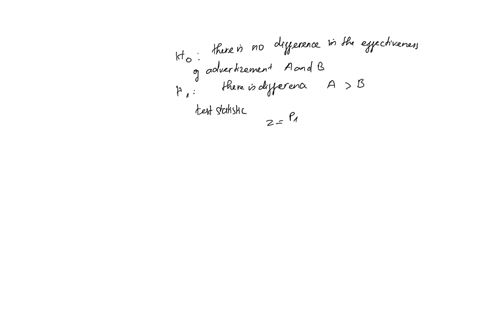 H₀: there is no difference in the effectiveness
of advertizement A and B
H₁: there is difference A > B
test statistic
z = P₁